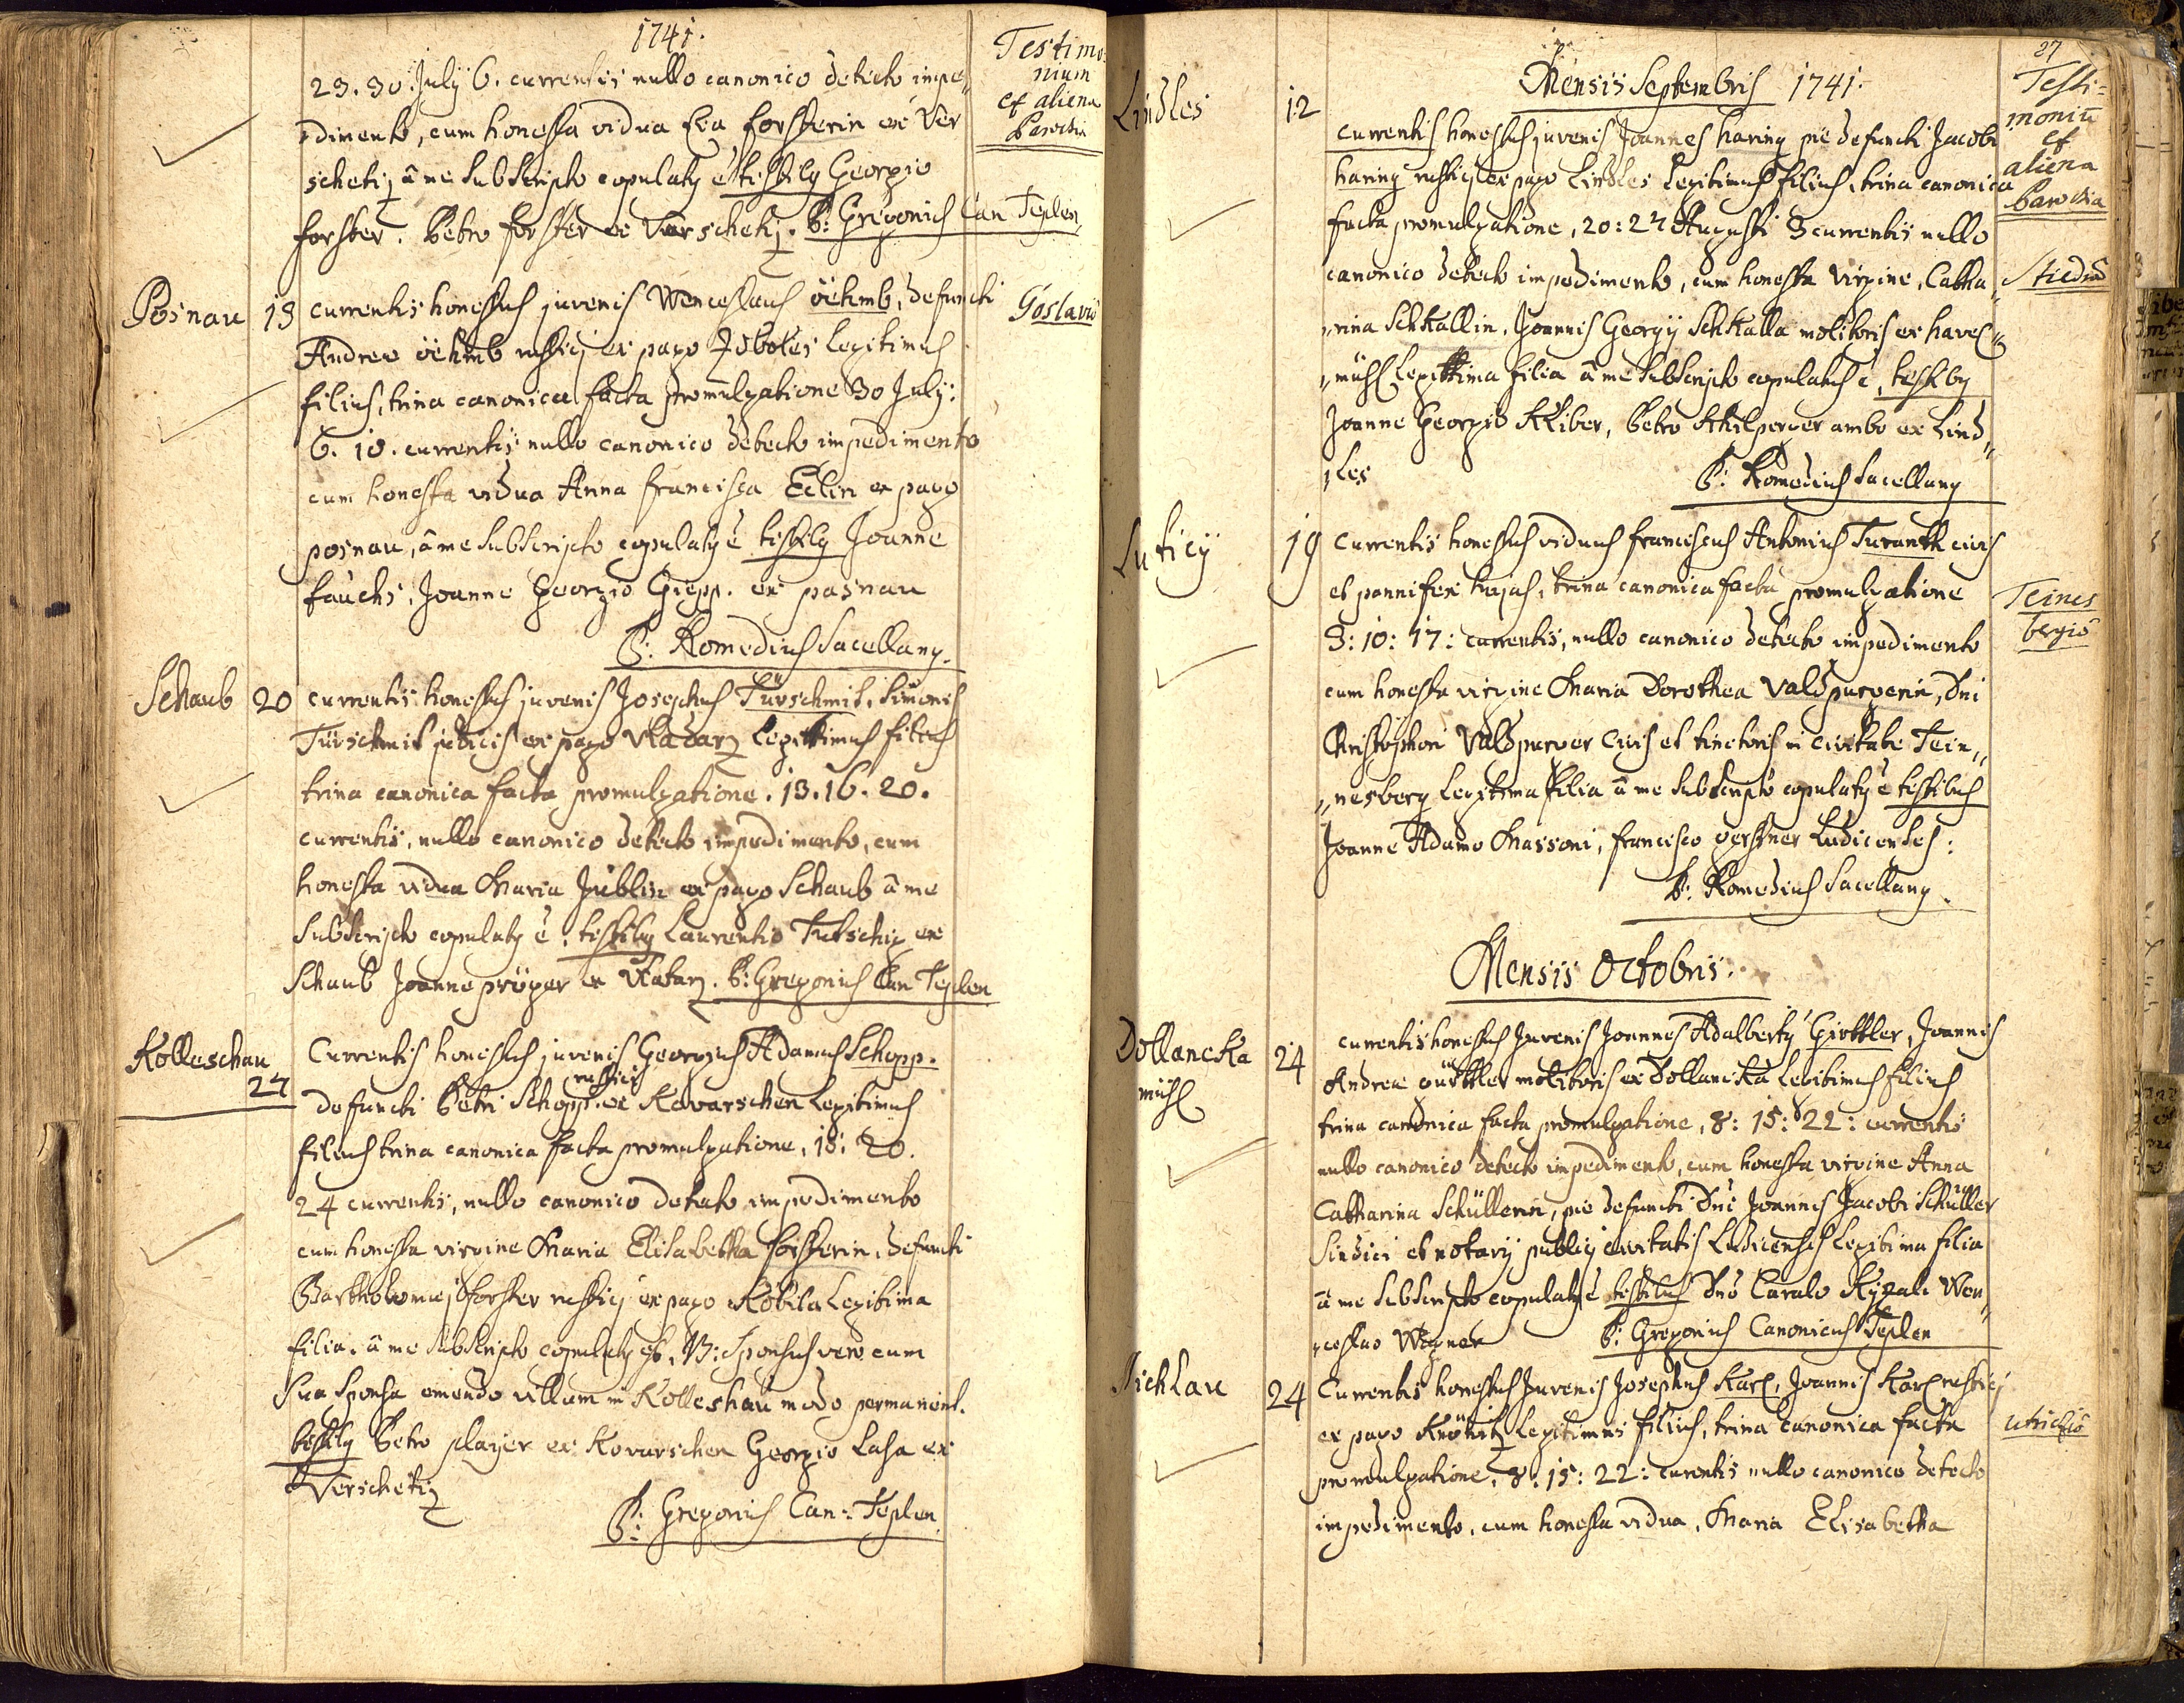 1741.
Testimo-
nium
et aliena
Parochia
23. 30. July 6. currentis nullo canonico detecto impe„
„dimento, cum honesta vidua Eva forsterin ex Ver
schetiz â me subscripto copulatq ê testibq Georgio
forster. Petro forster ex Verschetiz. P: Gregorius Can Teplen
Posnau
13
currentis honestus juvenis Wenceslaus öehmb, defuncti
Goslawio
Andreæ öehmb rustici ex pago Zoboles Legitimus
filius, trina canonica facta promulgatione 30 July:
6. 10. currentis nullo canonico detecto impedimento
cum honesta vidua Anna Francisca Eclin ex pago
posnau, â me subscripto copulatq ê testibq Joanne
fauchs, Joanne Georgio Giepp. ex pasnau
P: Romedius Sacellanq.
Schaub
20
currentis honestus juvenis Josephus Türschmit, Simonis
Türschmit judicis ex pago Vladarz Legittimus filius
trina canonica facta promulgatione. 13. 16. 20.
currentis, nullo canonico detecto impedimento, cum
honesta vidua Maria Jüblin ex pago Schaub â me
subscripto copulatq ê. testibq Laurentio Tutschig ex
Schaub Joanne pröger ex Vlatarz. P: Gregorius Can Teplen
Kolleschau
27
Currentis honestus juvenis Georgius Adamus Schopp.
rustici
defuncti Petri Schopp. ex Kovarschen Legitimus
filius trina canonica facta promulgatione, 15. 20.
24 currentis, nullo canonico detecto impedimento
cum honesta virgine Maria Elisabetha forsterin, defuncti
Bartholomæj forster rustici ex pago Kobila Legitima
filia. â me subscripto copulatq est, NB: Sponsus vero cum
sua sponsa emendo villam in Kolleshau modo permanent.
testibq Petro player ex Kovarschen Georgio Lasa ex
Verschetiz
P: Gregorius Can: Teplen.
27
Mensis Septembris 1741.
Testi=
moniū
et
aliena
Parochia
Lindles
12
currentis honestus juvenis Joannes haring pie defuncti Jacobi
haring rustici ex pago Lindles Legitimus filius, trina canonica
facta promulgatione, 20: 27 Augusti 3 currentis nullo
canonico detecto impedimento, cum honesta virgine, Catha„
„rina Schkallin, Joannis Georgÿ Schkalla molitoris ex haves„
„mühl Legittima filia â me subscripto copulatus ê, testibq
Joanne Georgio Kliber, Petro Schilperger ambo ex Lind„
„les
P: Romedius Sacellanq
Luticÿ
19
Currentis honestus viduus franciscus Antonius Turanth civis
et pannifex hujas, trina canonica facta promulgatione
Teines
bergio
3: 10: 17: currentis, nullo canonico detecto impedimento
cum honesta virgine Maria Dorothea Valdpurgerin, Dni
Christophori Valdpurger Civis et tinctoris in civitate Tein„
„nesberg Legitima filia â me subscripto copulatq ê testibus
Joanne Adamo Massoni, francisco gerstner Ludicenses:
P: Romedius Sacellanq.
Mensis Octobris.
Dollancka
mühl
24
currentis honestus Juvenis Joannes Adalbertq Girttler, Joannis
Andreæ gürttler molitoris ex Dollancka Legitimus filius
trina canonica facta promulgatione, 8: 15: 22: currentis
nullo canonico detecto impedimento, cum honesta virgine Anna
Catharina Schüllerin, pie defuncti Dni Joannis Jacobi Schüller
Sindici et notarÿ publici civitatis Ludicensis Legitima filia
â me subscripto copulatq ê testibus Dno Carolo Kyzali Wen„
„ceslao Wagner P: Gregorius Canonicus Teplen
Michlau
24
Currentis honestus Juvenis Josephus Karl, Joannis Karl rustici
ex pago Knöhitz Legitimus filius, trina canonica facta
utrichio
promulgatione, 8: 15: 22: currentis nullo canonico detecto
impedimento, cum honesta vidua, Maria Elisabetha